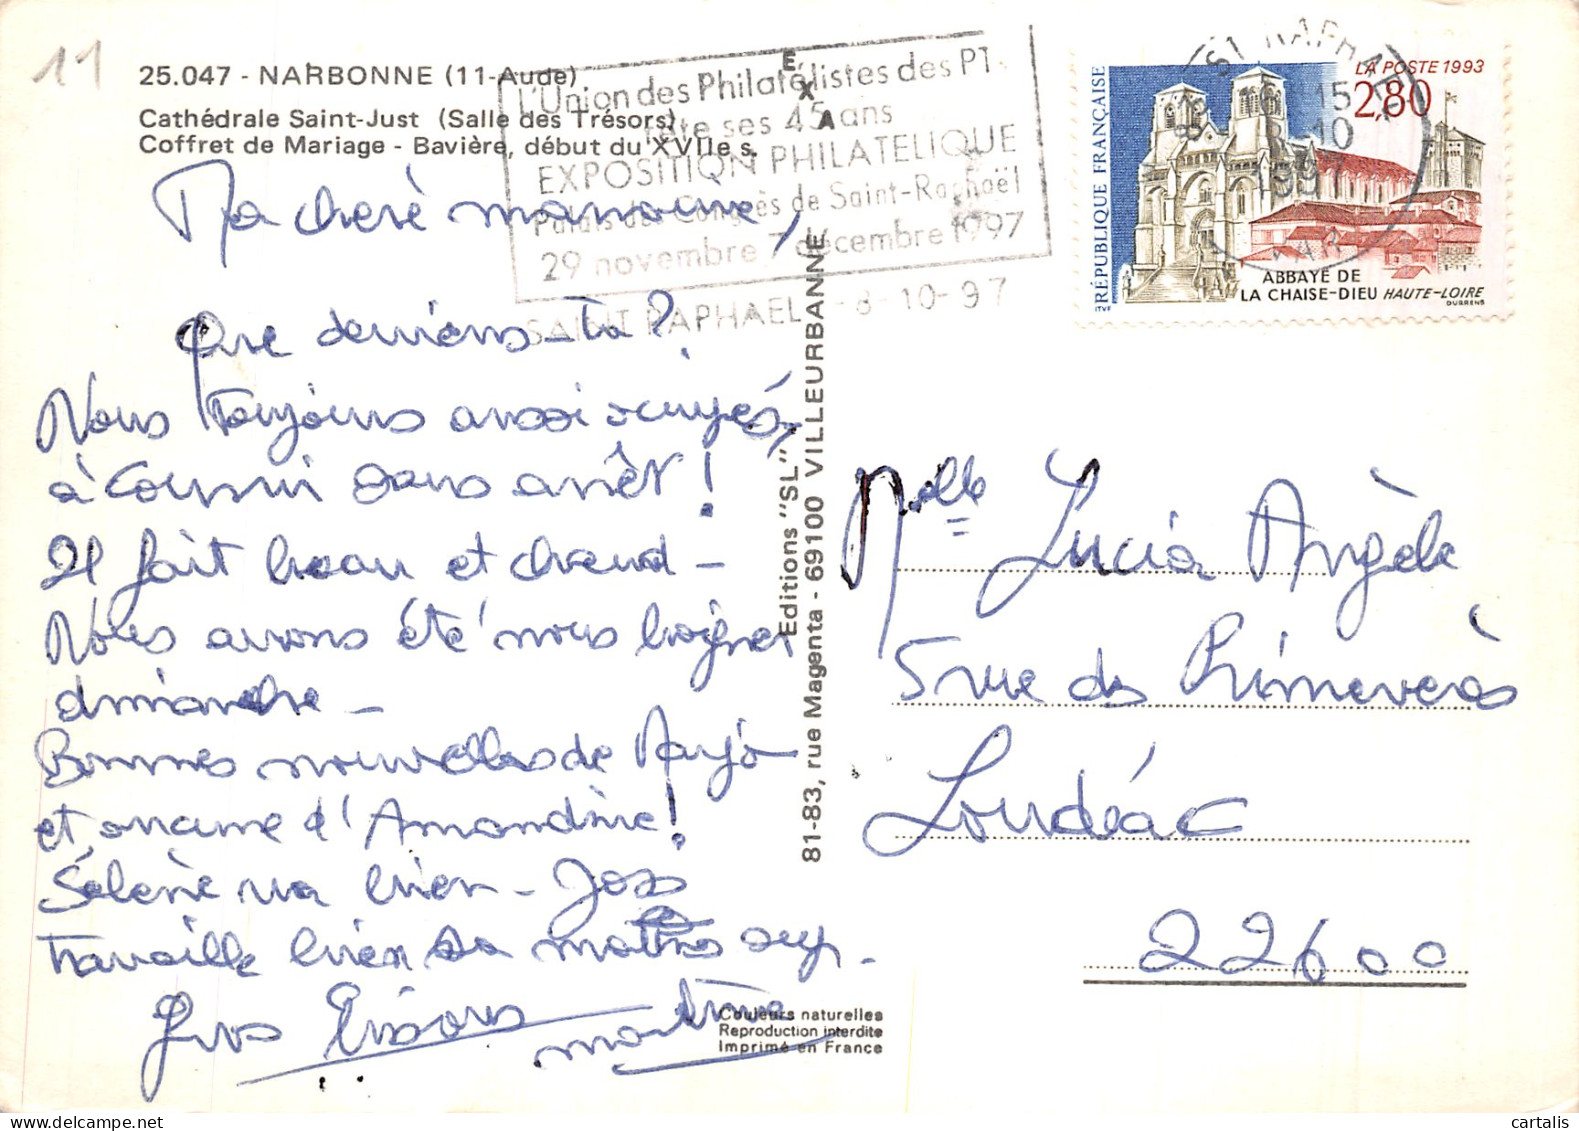 11
25.047 - NARBONNE (11-Aude)
Cathédrale Saint-Just (Salle des Trésors)
Coffret de Mariage - Bavière, début du XVIIe s.
EXA
L'Union des Philatélistes des PTT
fête ses 45 ans
EXPOSITION PHILATELIQUE
Palais des Congrès de Saint-Raphaël
29 novembre 7 décembre 1997
SAINT RAPHAEL - 8-10-97
ST RAPHAEL
16H15
8 10
1997
VAR
LA POSTE 1993
2,80
RÉPUBLIQUE FRANÇAISE
ABBAYE DE
LA CHAISE-DIEU HAUTE-LOIRE
DURRENS
ITVF
Ma chère mamoune,
Que deviens-tu ?
Nous toujours aussi occupés,
à courir sans arrêt !
Il fait beau et chaud -
Nous avons été nous baigner
dimanche -
Bonnes nouvelles de Marjo
et aucune d'Amandine !
Sélène va bien - Joss
travaille bien sa
Gros Bisous
Martine
Editions "SL",
81-83, rue Magenta - 69100 VILLEURBANNE
Couleurs naturelles
Reproduction interdite
Imprimé en France
Melle Lucia Angèle
5 rue des Primevères
Loudéac
22600
cartalis